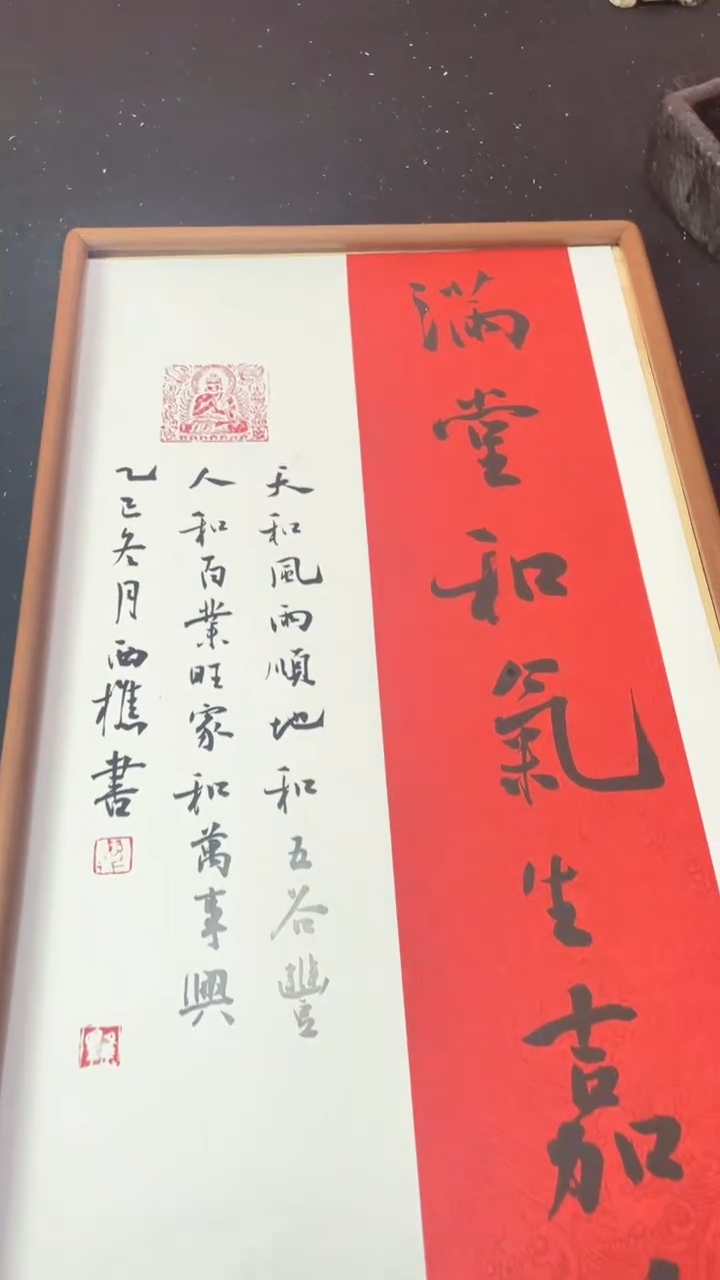 满堂和氣生嘉
天和風雨順地和五谷豐
人和百業旺家和萬事興
乙巳冬月西樵書